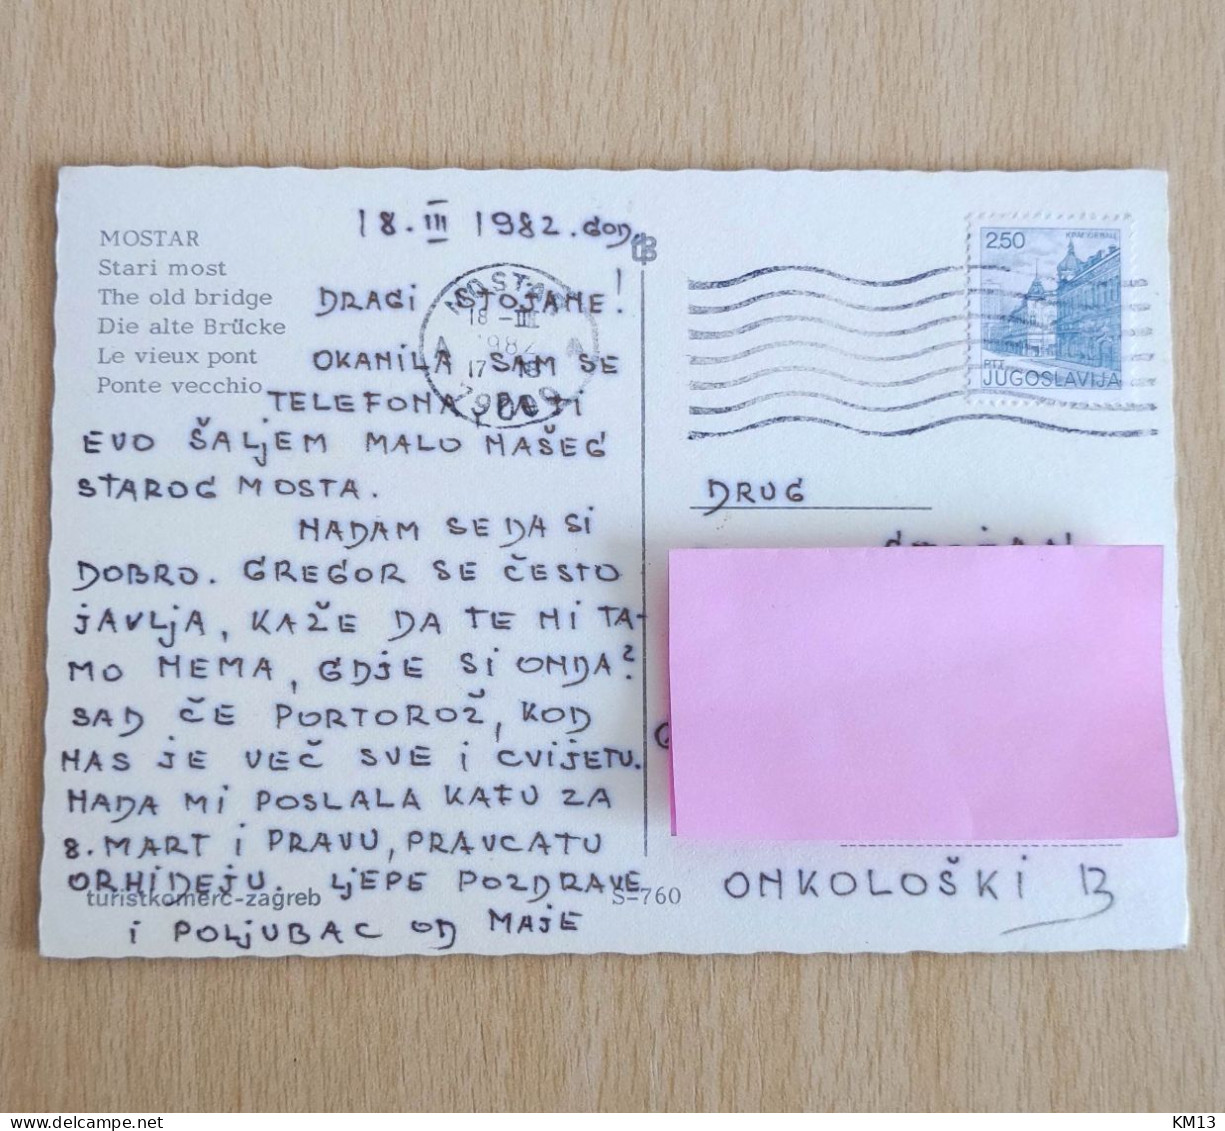 18. III 1982. GOD.
MOSTAR
Stari most
The old bridge
Die alte Brücke
Le vieux pont
Ponte vecchio
DRAGI STOJANE!
OKANILA SAM SE
TELEFONA, PA TI
EVO ŠALJEM MALO NAŠEG
STAROG MOSTA.
NADAM SE DA SI
DOBRO. GREGOR SE ČESTO
JAVLJA, KAŽE DA TE NI TA-
MO NEMA, GDJE SI ONDA?
SAD ČE PORTOROŽ, KOD
NAS JE VEČ SVE I CVIJETU.
NADA MI POSLALA KAFU ZA
8. MART I PRAVU, PRAVCATU
ORHIDEJU. LJEPE POZDRAVE
I POLJUBAC OD MAJE
turistkomerc-zagreb
S-760
MOSTAR
18-III
1982
17
A A
79000
2.50
PTT
JUGOSLAVIJA
DRUG
STOJAN
ONKOLOŠKI B
KM13